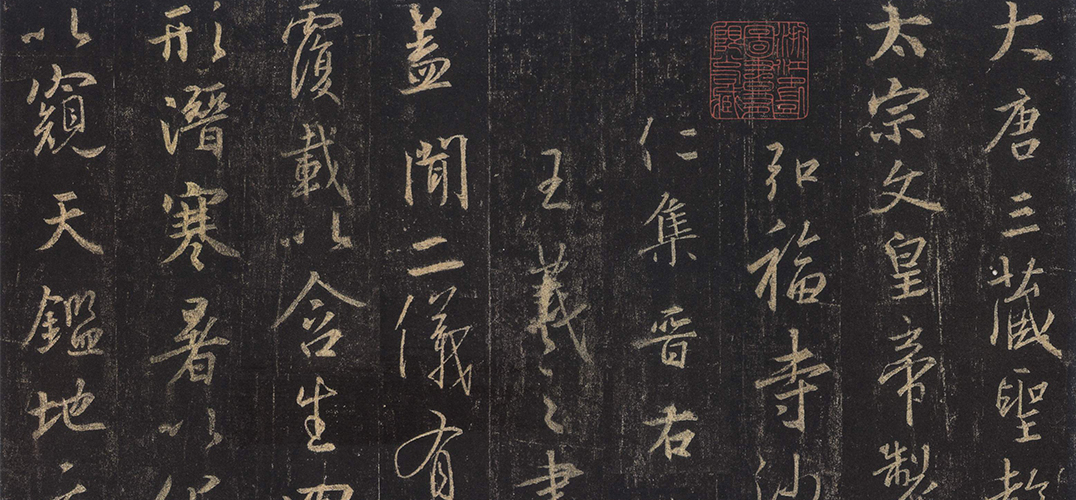 大唐三藏聖教
太宗文皇帝製
弘福寺沙
仁集晉右
王羲之書
蓋聞二儀有
覆載以含生
形潛寒暑以
以窺天鑑地